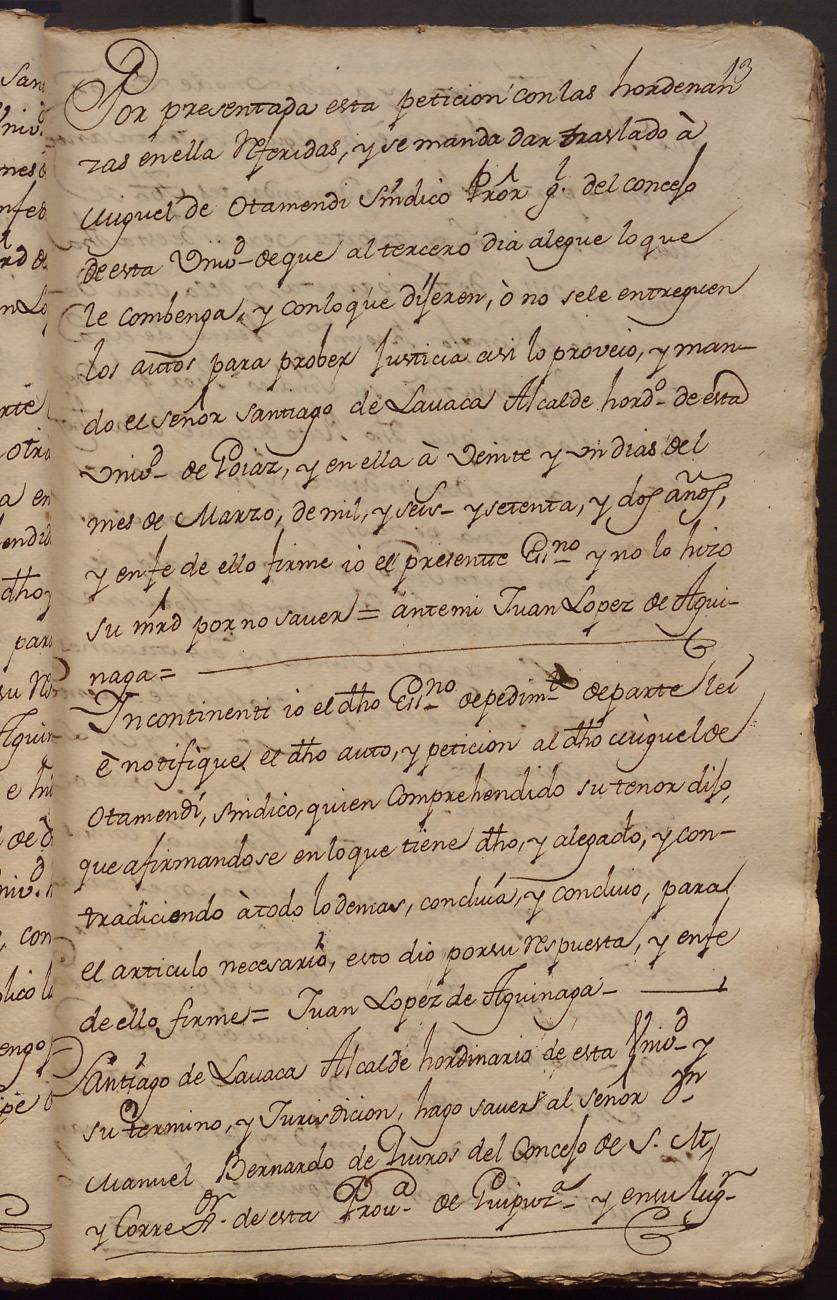 13
Por presentada esta peticion con las hordenan
zas en ella Referidas, y se manda dar traslado à
Miguel de Otamendi Sindico Pror gl. del concejo
de esta Univd- de que al tercero dia alegue lo que
le combenga, y con lo que dijeren, ò no se le entreguen
los autos para prober Justicia asi lo proveio, y man-
do el señor Santiago de Lavaca Alcalde hordo- de esta
Univd- de Goiaz, y en ella à Veinte y un dias del
mes de Marzo, de mil, y seis- y setenta, y dos años,
y en fe de ello firme io el presente Essno y no lo hizo
su mrd por no saver = ante mi Juan Lopez de Agui-
naga =
Incontinenti io el dho Essno de pedimto de parte leí
è notifique el dho auto, y peticion al dho Miguel de
Otamendí, sindico, quien Comprehendido su tenor dijo,
que afirmandose en lo que tiene dho, y alegado, y con-
tradiciendo à todo lo demas, concluía, y concluio, para
el articulo necesario, esto dio por su Respuesta, y en fe
de ello firme = Juan Lopez de Aguinaga-
Santiago de Lavaca Alcalde hordinario de esta Univd- y
su termino, y Jurisdicion, hago saver al señor Dn
Manuel Bernardo de Quiros del Concejo de S. M,
y Corregr. de esta Prova- de Guipuza- y en su lugr-